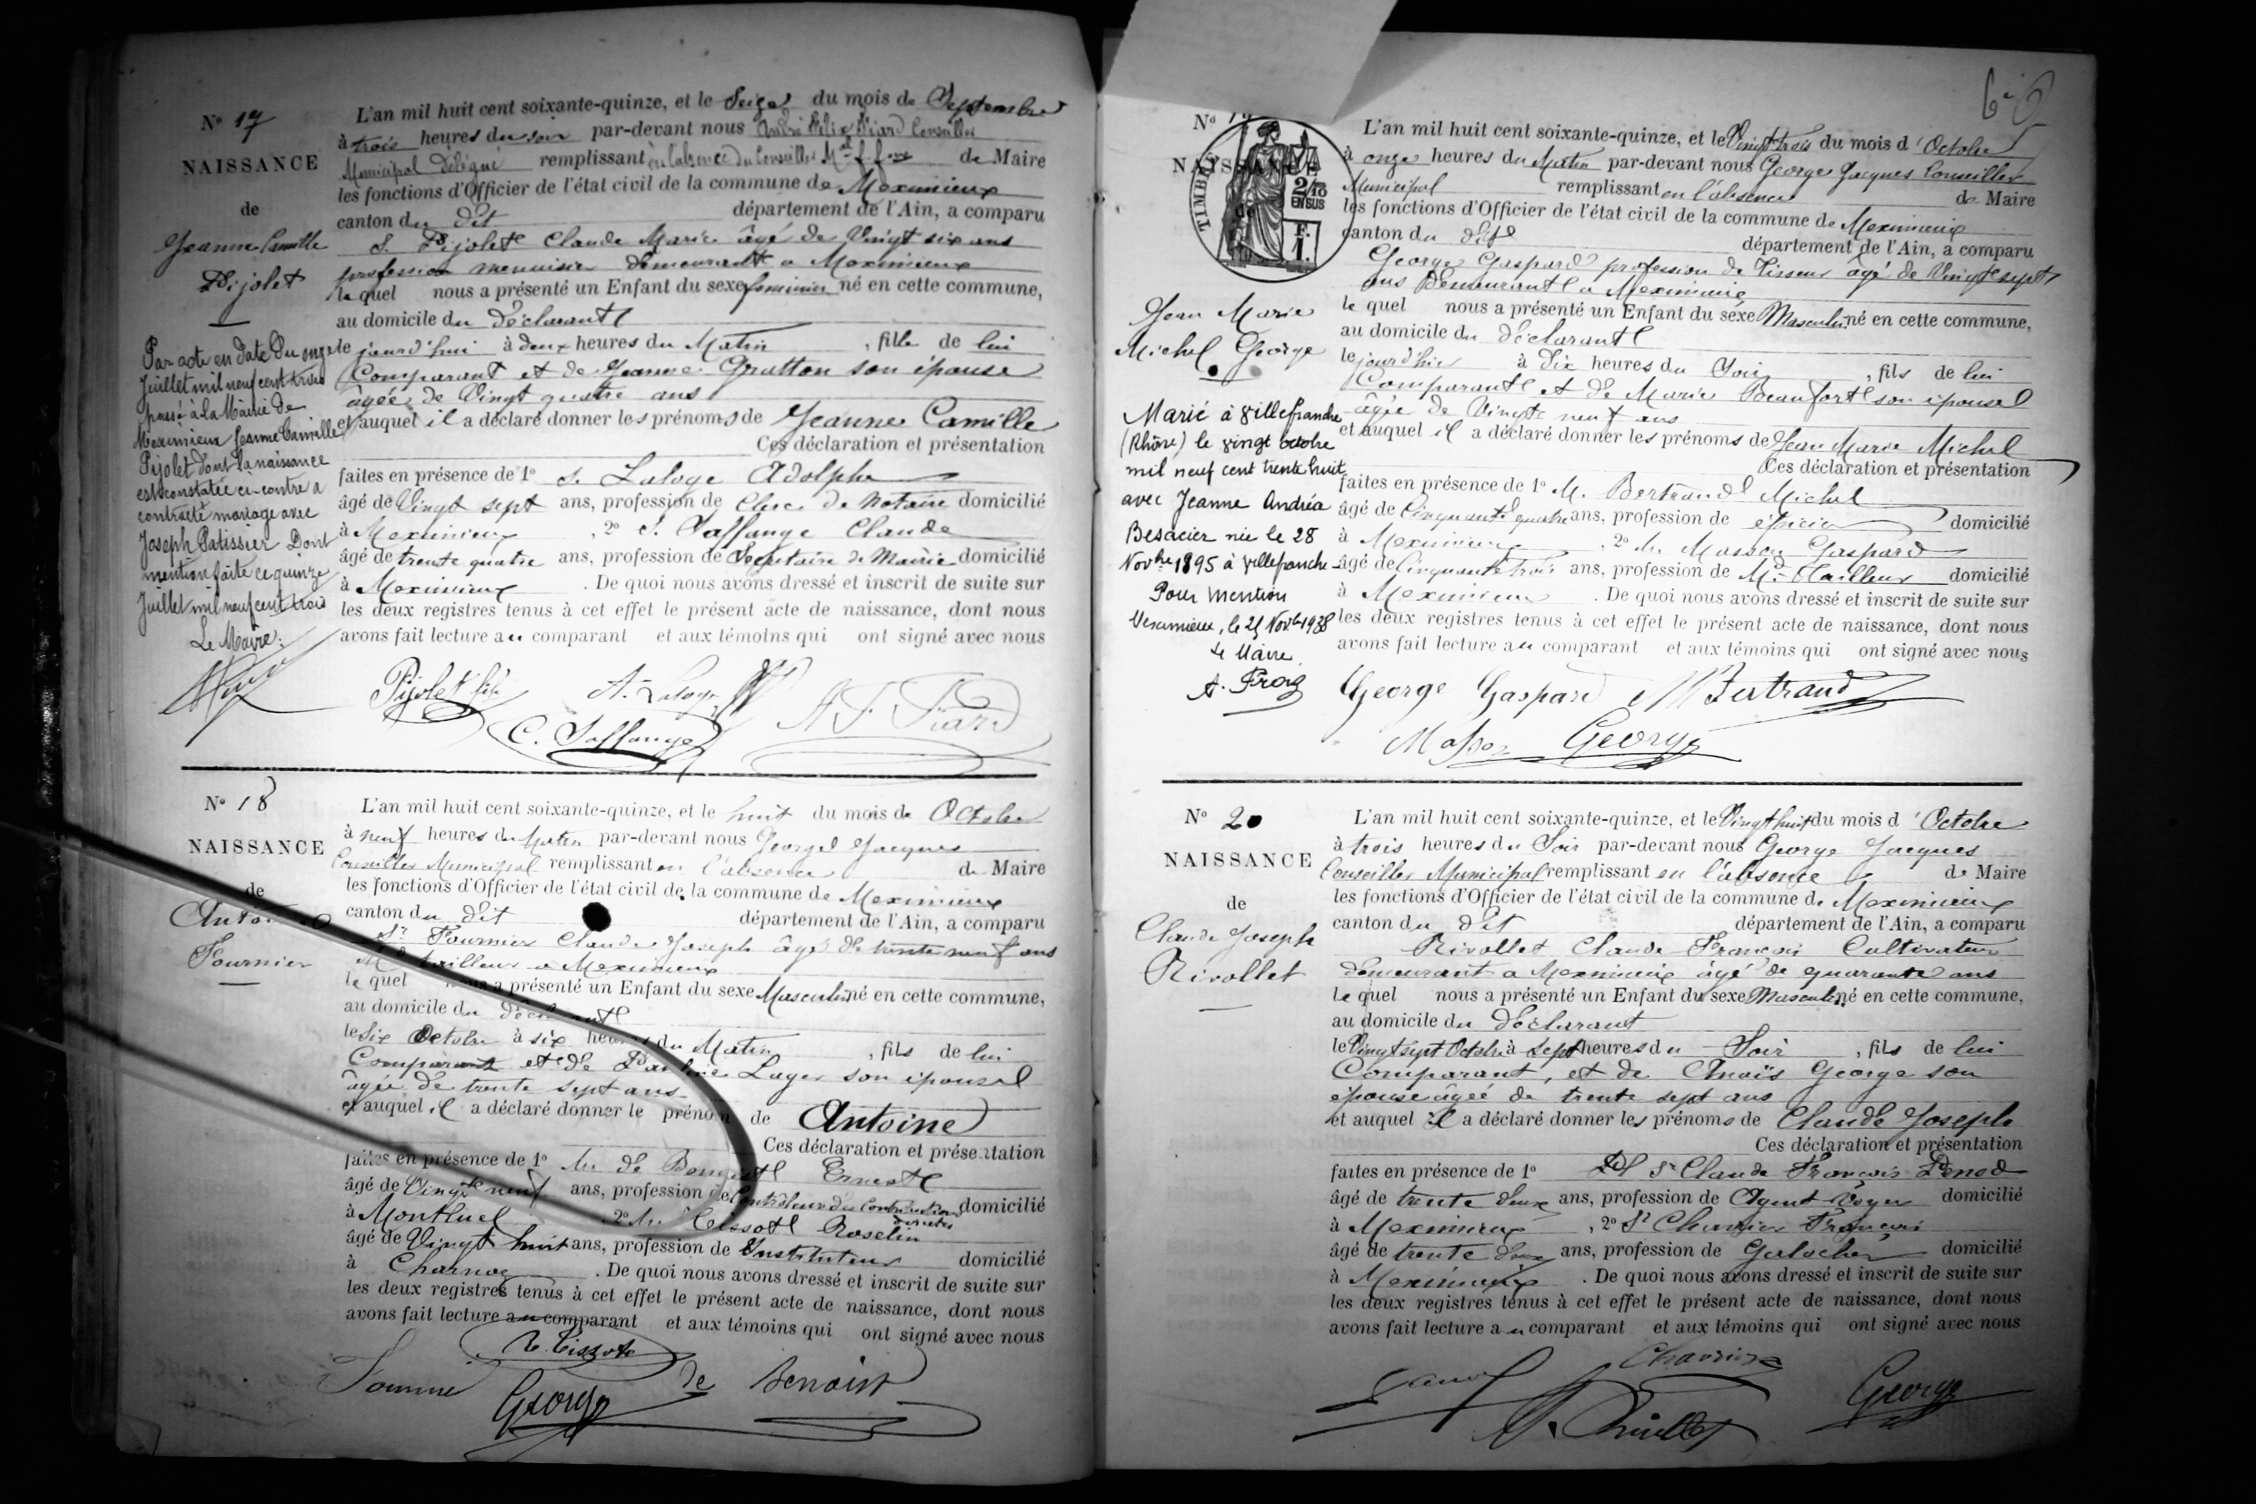 N° 17
NAISSANCE
de
Jeanne Camille
Pijolet
Par acte en date du onze
Juillet mil neuf cent trois
passé à la Mairie de
Meximieux Jeanne Camille
Pijolet dont la naissance
est constatée ci-contre a
contracté mariage avec
Joseph Patissier Dont
mention faite ce quinze
Juillet mil neuf cent trois
Le Maire:
L'an mil huit cent soixante-quinze, et le Seize du mois de Septembre
à trois heures du soir par-devant nous André Félix Piard Conseiller
Municipal délégué remplissant en l'absence du Conseiller de Maire
les fonctions d'Officier de l'état civil de la commune de Meximieux
canton du dit département de l'Ain, a comparu
S. Pijolet Claude Marie âgé de Vingt six ans
profession menuisier demeurant a Meximieux
lequel nous a présenté un Enfant du sexe feminin né en cette commune,
au domicile du déclarant
le jourd'hui à deux heures du Matin, fille de lui
Comparant et de Jeanne Gratton son épouse
âgée de Vingt quatre ans
et auquel il a déclaré donner les prénoms de Jeanne Camille
Ces déclaration et présentation
faites en présence de 1° S. Laloge Adolphe
âgé de Vingt sept ans, profession de Clerc de Notaire domicilié
à Meximieux, 2° S. Saffange Claude
âgé de trente quatre ans, profession de Secrétaire de Mairie domicilié
à Meximieux. De quoi nous avons dressé et inscrit de suite sur
les deux registres tenus à cet effet le présent acte de naissance, dont nous
avons fait lecture au comparant et aux témoins qui ont signé avec nous
Pijolet fils A. Laloge
C. Saffange A F Piard
N° 18
NAISSANCE
de
Antoine
Fournier
L'an mil huit cent soixante-quinze, et le huit du mois de Octobre
à neuf heures du Matin par-devant nous George Jacques
Conseiller Municipal remplissant en l'absence de Maire
les fonctions d'Officier de l'état civil de la commune de Meximieux
canton du dit département de l'Ain, a comparu
Sr Fournier Claude Joseph âgé de trente neuf ans
Md tailleur a Meximieux
lequel nous a présenté un Enfant du sexe Masculin né en cette commune,
au domicile du déclarant
le Six Octobre à six heures du Matin, fils de lui
Comparant et de Pauline Lager son épouse
âgée de trente sept ans
et auquel il a déclaré donner le prénom de Antoine
Ces déclaration et présentation
faites en présence de 1° Ernest
âgé de Vingt neuf ans, profession de Contrôleur des Contributions directes domicilié
à Montluel, 2° Mr Tissot Roselin
âgé de Vingt huit ans, profession de Instituteur domicilié
à Charnoz. De quoi nous avons dressé et inscrit de suite sur
les deux registres tenus à cet effet le présent acte de naissance, dont nous
avons fait lecture au comparant et aux témoins qui ont signé avec nous
R. Tissot
George de Benoist
6
N°
TIMBRE
2/10 EN SUS
F. 1.
NAISSANCE
de
Jean Marie
Michel George
Marié à Villefranche
(Rhône) le vingt octobre
mil neuf cent trente huit
avec Jeanne Andréa
Besacier née le 28
Novbre 1895 à Villefranche
Pour mention
Meximieux, le 25 Novbre 1938
Le Maire
L'an mil huit cent soixante-quinze, et le Vingt trois du mois d'Octobre
à onze heures du Matin par-devant nous George Jacques Conseiller
Municipal remplissant en l'absence de Maire
les fonctions d'Officier de l'état civil de la commune de Meximieux
canton du dit département de l'Ain, a comparu
George Gaspard profession de Tisseur âgé de Vingt sept
ans Demeurant a Meximieux
lequel nous a présenté un Enfant du sexe Masculin né en cette commune,
au domicile du déclarant
le jourd'hier à Dix heures du Soir, fils de lui
Comparant et de Marie Beaufort son épouse
âgée de Vingt neuf ans
et auquel il a déclaré donner les prénoms de Jean Marie Michel
Ces déclaration et présentation
faites en présence de 1° M. Bertrand Michel
âgé de Cinquante quatre ans, profession de épicier domicilié
à Meximieux, 2° Mr Masson Gaspard
âgé de Cinquante trois ans, profession de Md Tailleur domicilié
à Meximieux. De quoi nous avons dressé et inscrit de suite sur
les deux registres tenus à cet effet le présent acte de naissance, dont nous
avons fait lecture au comparant et aux témoins qui ont signé avec nous
George Gaspard M Bertrand
Masson George
N° 20
NAISSANCE
de
Claude Joseph
Rivollet
L'an mil huit cent soixante-quinze, et le Vingt huit du mois d'Octobre
à trois heures du Soir par-devant nous George Jacques
Conseiller Municipal remplissant en l'absence de Maire
les fonctions d'Officier de l'état civil de la commune de Meximieux
canton du dit département de l'Ain, a comparu
Rivollet Claude François Cultivateur
demeurant a Meximieux âgé de quarante ans
lequel nous a présenté un Enfant du sexe Masculin né en cette commune,
au domicile du déclarant
le Vingt sept Octobre à sept heures du Soir, fils de lui
Comparant, et de Anaïs George son
épouse âgée de trente sept ans
et auquel il a déclaré donner les prénoms de Claude Joseph
Ces déclaration et présentation
faites en présence de 1° Sr Claude François
âgé de trente deux ans, profession de Agent Voyer domicilié
à Meximieux, 2° Sr Chavrier François
âgé de trente deux ans, profession de domicilié
à Meximieux. De quoi nous avons dressé et inscrit de suite sur
les deux registres tenus à cet effet le présent acte de naissance, dont nous
avons fait lecture au comparant et aux témoins qui ont signé avec nous
Chavrier
George